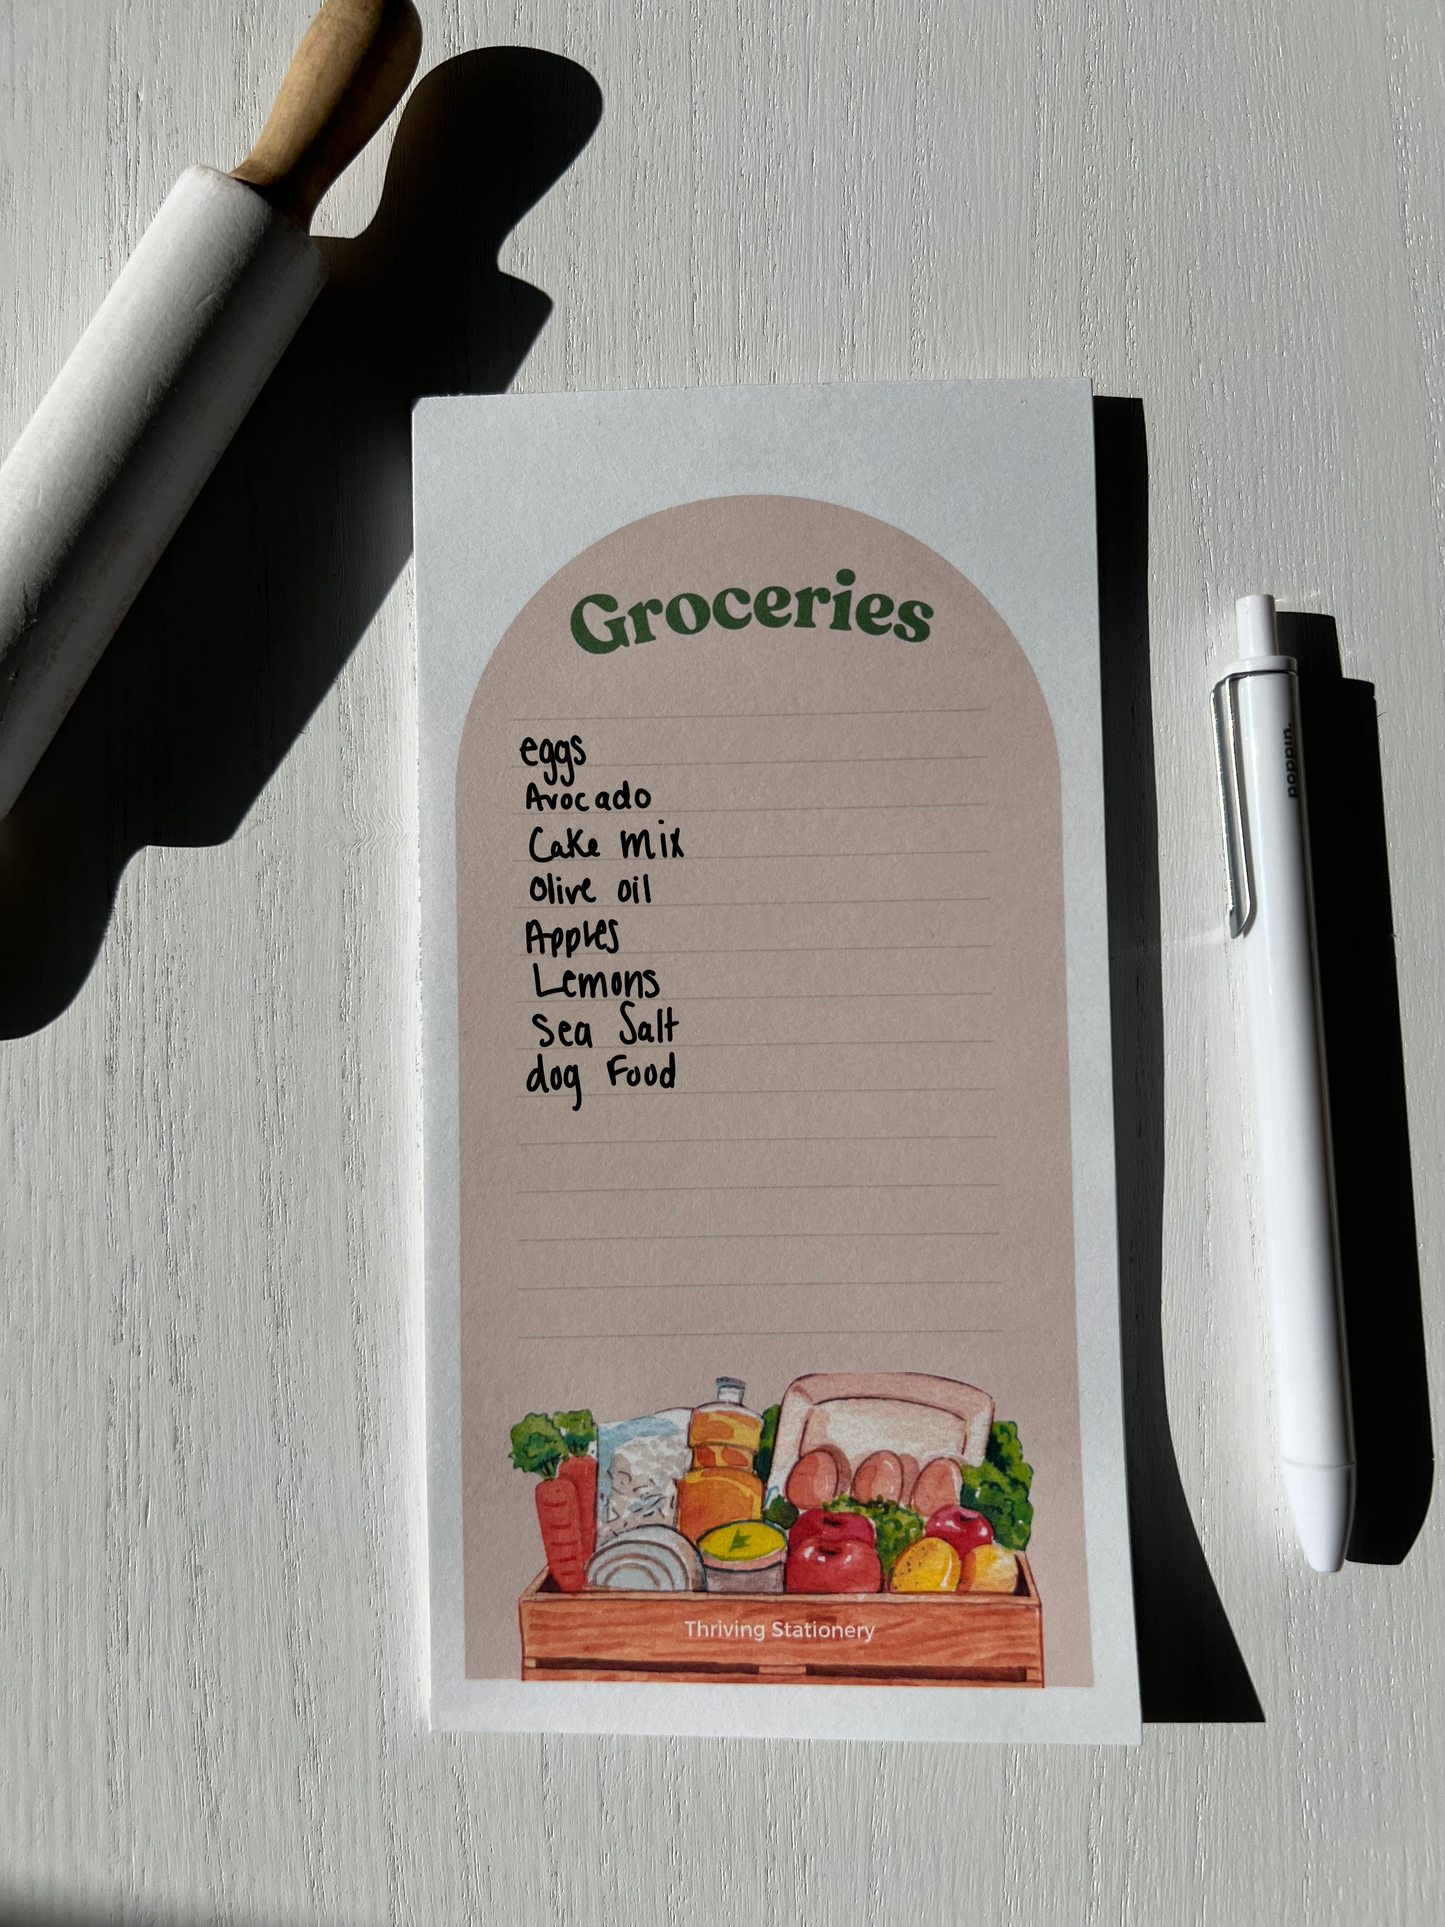 Groceries
eggs
Avocado
Cake mix
Olive oil
Apples
Lemons
Sea Salt
dog Food
Thriving Stationery
poppin.